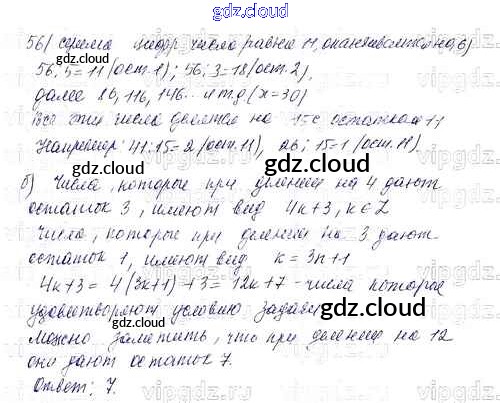 gdz.cloud
gdz.cloud
56/ сумма цифр числа равна 11, оканчивается на 6)
56:5=11 (ост.1); 56:3=18 (ост.2),
далее 86, 116, 146... и т.д (x=30)
Все эти числа делятся на 15 с остатком 11
Например: 41:15=2 (ост.11), 26:15=1 (ост.11).
gdz.cloud
gdz.cloud
б) Числа, которые при делении на 4 дают
остаток 3, имеют вид 4k+3, k∈Z
gdz.cloud
числа, которые при делении на 3 дают
остаток 1, имеют вид k=3n+1
4k+3=4(3k+1)+3=12k+7 - числа которые
удовлетворяют условию задачи
gdz.cloud
можно заметить, что при делении на 12
они дают остаток 7.
Ответ: 7.
vipgdz.ru